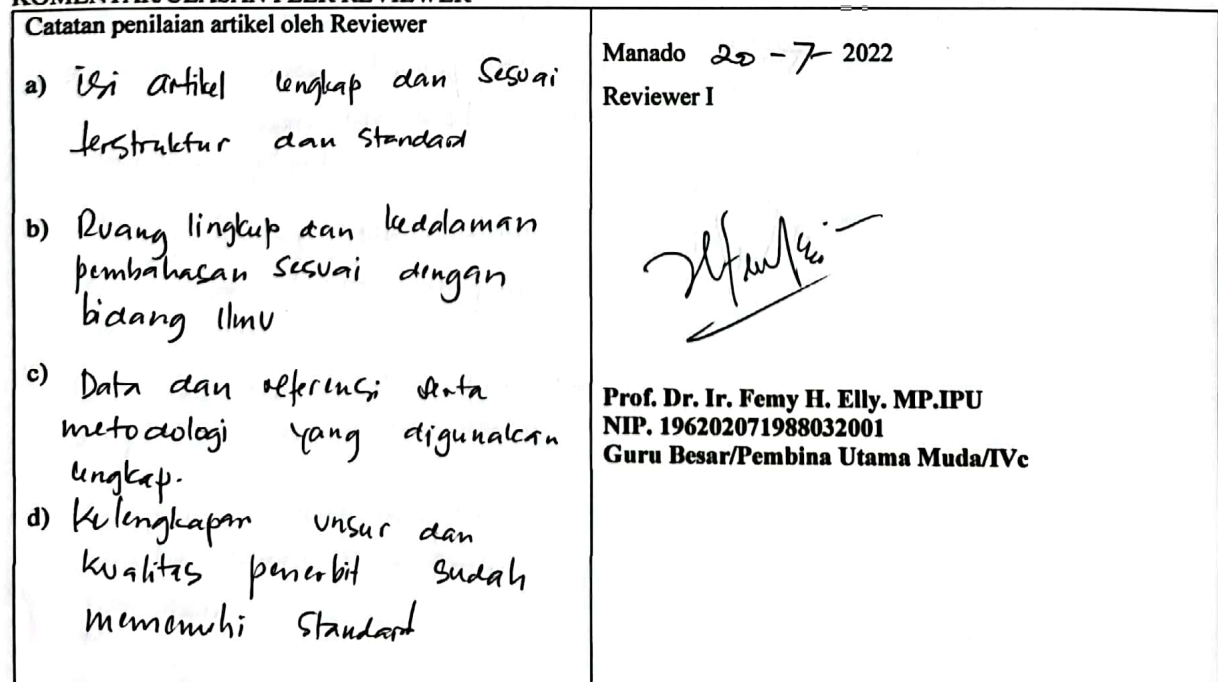 KOMENTAR/ULASAN PEER REVIEWER
Catatan penilaian artikel oleh Reviewer
a) isi artikel lengkap dan Sesuai
terstruktur dan Standard
b) Ruang lingkup dan kedalaman
pembahasan sesuai dengan
bidang Ilmu
c) Data dan referensi serta
metodologi yang digunakan
lengkap.
d) Kelengkapan unsur dan
kualitas penerbit sudah
memenuhi Standard
Manado 20 - 7 - 2022
Reviewer I
Prof. Dr. Ir. Femy H. Elly. MP.IPU
NIP. 196202071988032001
Guru Besar/Pembina Utama Muda/IVc